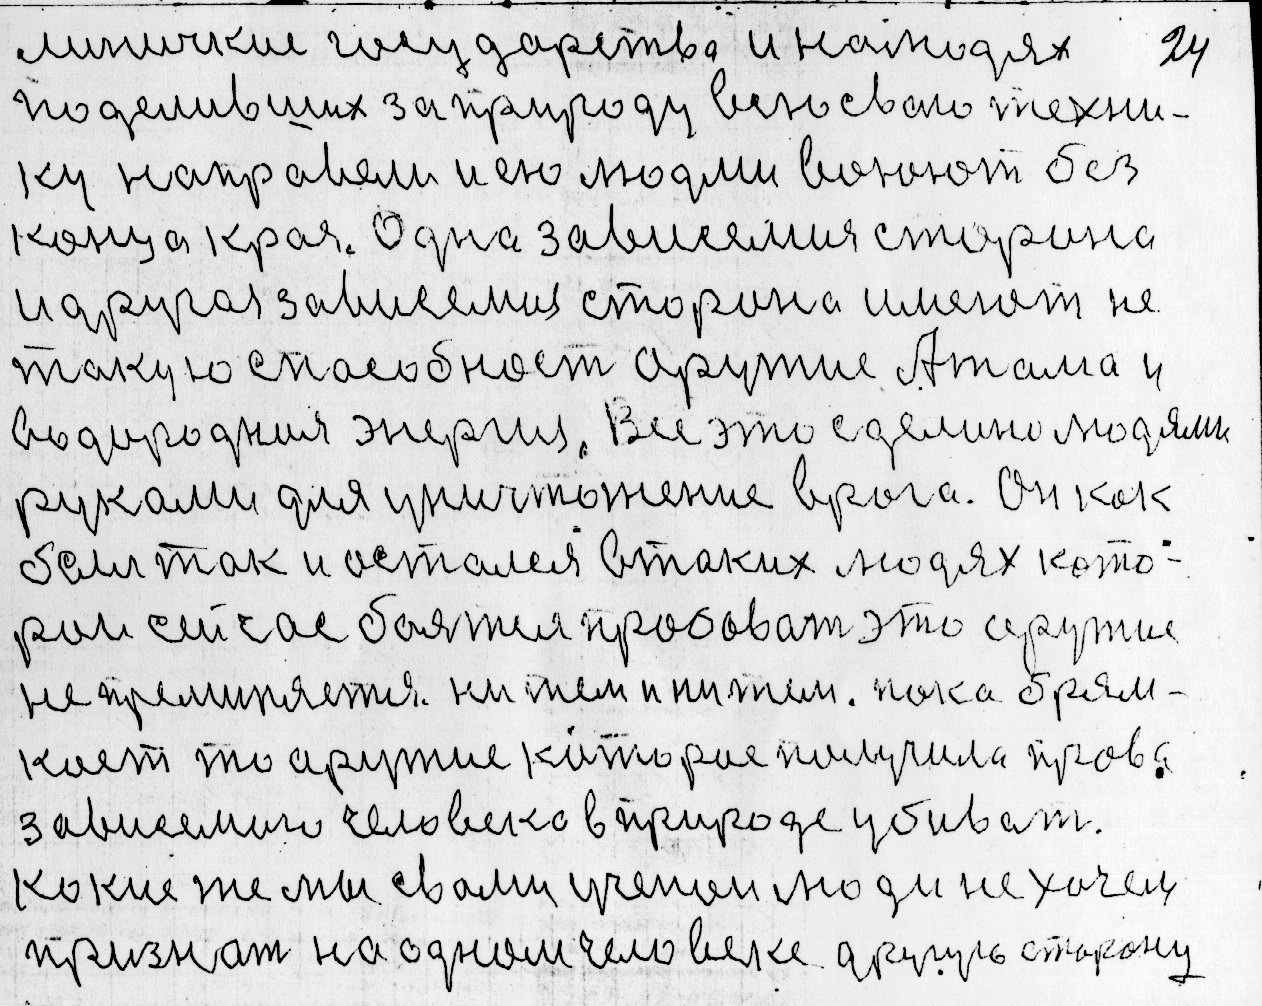 линичкие государства и на людях 24
поделивших за природу всю сваю техни-
ку направели и ею людми воюют без
конца края. Одна зависемия сторона
и другая зависемия сторона имеют не
такую способност аружие Атама и
водородная энергия. Все это сделино людями
руками для уничтожение врага. Он как
бел так и осталея в таких людях като-
рои сейчас боятся пробоват это аружие
не преминяется. ни тем и ни тем. пока брям-
кает то аружие каторае получила права
зависемиго человека в природе убиват.
Какие же мы с вами учении люди не хочем
признат на одном человеке другую сторону